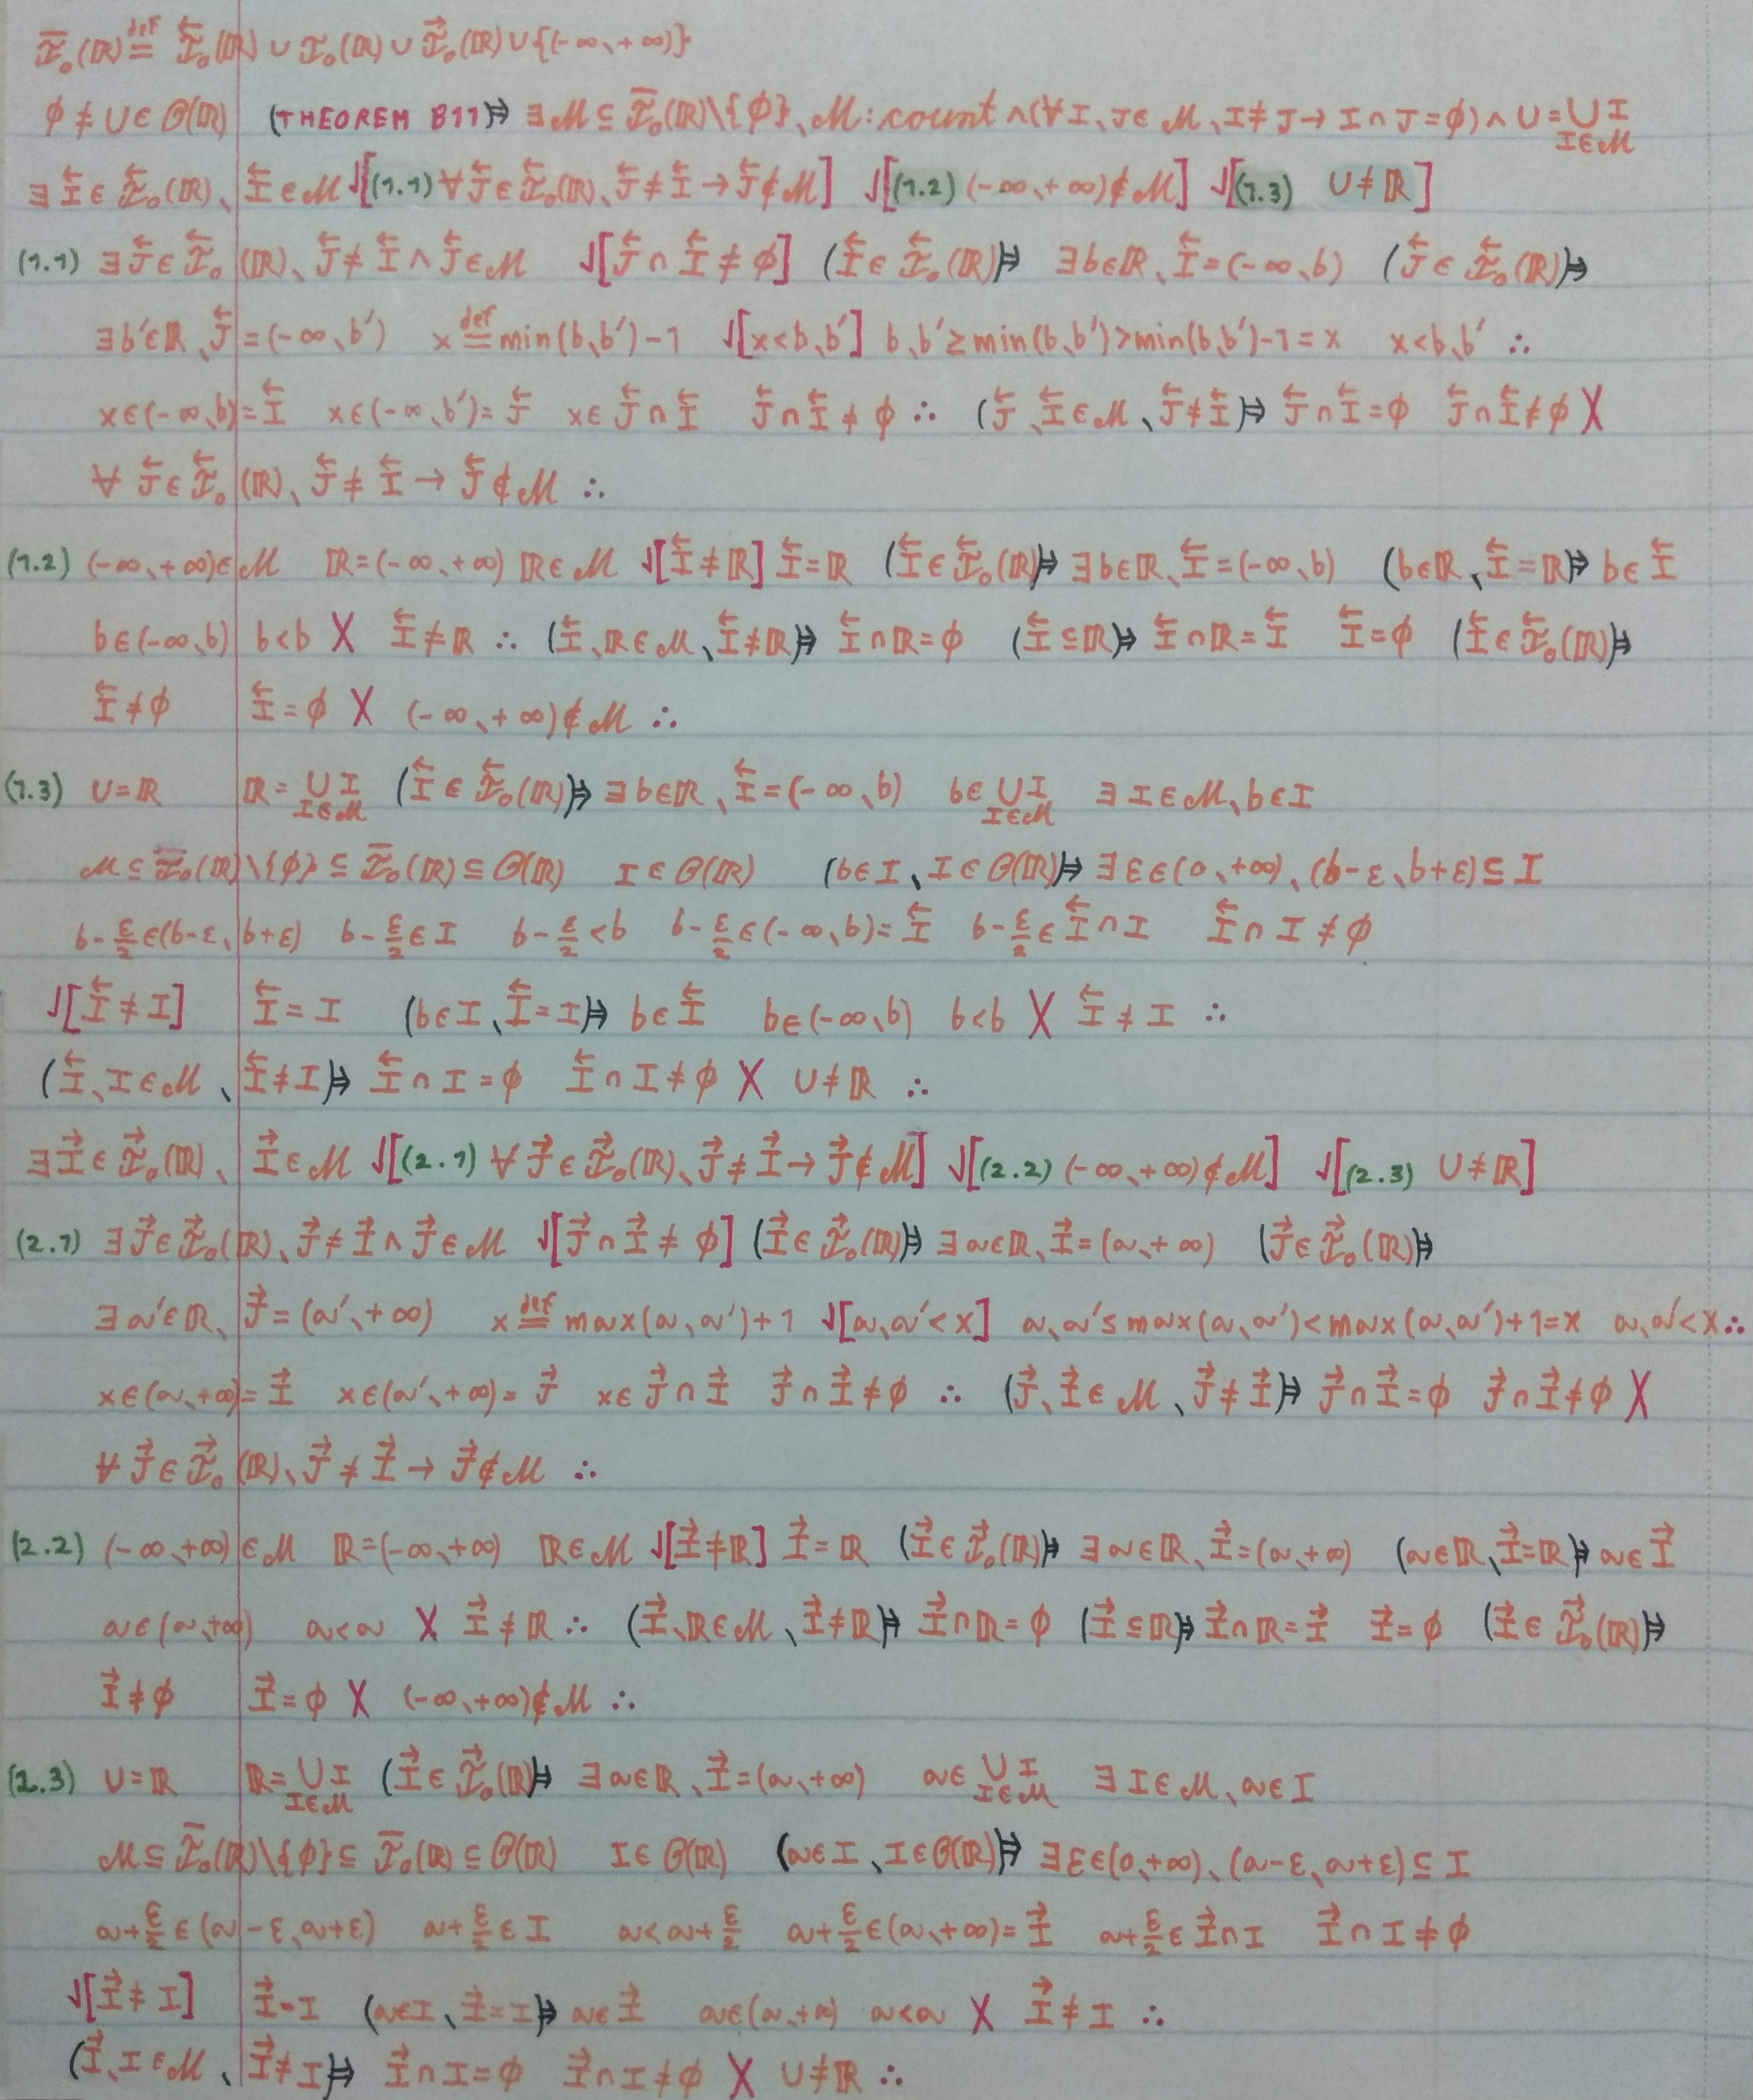 𝓘̄ₒ(ℝ) ≝ 𝓘⃖ₒ(ℝ) ∪ 𝓘ₒ(ℝ) ∪ 𝓘⃗ₒ(ℝ) ∪ {(-∞、+∞)}
ϕ ≠ U ∈ 𝒪(ℝ) (THEOREM B11)⇒ ∃ℳ ⊆ 𝓘̄ₒ(ℝ)\{ϕ}、ℳ: count ∧ (∀I、J∈ℳ、I≠J → I∩J=ϕ) ∧ U = ∪_{I∈ℳ} I
∃I⃖ ∈ 𝓘⃖ₒ(ℝ)、I⃖∈ℳ √[(1.1) ∀J⃖∈𝓘⃖ₒ(ℝ)、J⃖≠I⃖ → J⃖∉ℳ] √[(1.2) (-∞、+∞)∉ℳ] √[(1.3) U≠ℝ]
(1.1) ∃J⃖∈𝓘⃖ₒ(ℝ)、J⃖≠I⃖ ∧ J⃖∈ℳ √[J⃖∩I⃖≠ϕ] (I⃖∈𝓘⃖ₒ(ℝ))⇒ ∃b∈ℝ、I⃖=(-∞、b) (J⃖∈𝓘⃖ₒ(ℝ))⇒
∃b'∈ℝ、J⃖=(-∞、b') x≝min(b、b')-1 √[x<b、b'] b、b'≥min(b、b')>min(b、b')-1=x x<b、b' ∴
x∈(-∞、b)=I⃖ x∈(-∞、b')=J⃖ x∈J⃖∩I⃖ J⃖∩I⃖≠ϕ ∴ (J⃖、I⃖∈ℳ、J⃖≠I⃖)⇒ J⃖∩I⃖=ϕ J⃖∩I⃖≠ϕ X
∀J⃖∈𝓘⃖ₒ(ℝ)、J⃖≠I⃖ → J⃖∉ℳ ∴
(1.2) (-∞、+∞)∈ℳ ℝ=(-∞、+∞) ℝ∈ℳ √[I⃖≠ℝ] I⃖=ℝ (I⃖∈𝓘⃖ₒ(ℝ))⇒ ∃b∈ℝ、I⃖=(-∞、b) (b∈ℝ、I⃖=ℝ)⇒ b∈I⃖
b∈(-∞、b) b<b X I⃖≠ℝ ∴ (I⃖、ℝ∈ℳ、I⃖≠ℝ)⇒ I⃖∩ℝ=ϕ (I⃖⊆ℝ)⇒ I⃖∩ℝ=I⃖ I⃖=ϕ (I⃖∈𝓘⃖ₒ(ℝ))⇒
I⃖≠ϕ I⃖=ϕ X (-∞、+∞)∉ℳ ∴
(1.3) U=ℝ ℝ=∪_{I∈ℳ} I (I⃖∈𝓘⃖ₒ(ℝ))⇒ ∃b∈ℝ、I⃖=(-∞、b) b∈∪_{I∈ℳ} I ∃I∈ℳ、b∈I
ℳ⊆𝓘̄ₒ(ℝ)\{ϕ}⊆𝓘̄ₒ(ℝ)⊆𝒪(ℝ) I∈𝒪(ℝ) (b∈I、I∈𝒪(ℝ))⇒ ∃ε∈(0、+∞)、(b-ε、b+ε)⊆I
b-ε/2∈(b-ε、b+ε) b-ε/2∈I b-ε/2<b b-ε/2∈(-∞、b)=I⃖ b-ε/2∈I⃖∩I I⃖∩I≠ϕ
√[I⃖≠I] I⃖=I (b∈I、I⃖=I)⇒ b∈I⃖ b∈(-∞、b) b<b X I⃖≠I ∴
(I⃖、I∈ℳ、I⃖≠I)⇒ I⃖∩I=ϕ I⃖∩I≠ϕ X U≠ℝ ∴
∃I⃗∈𝓘⃗ₒ(ℝ)、I⃗∈ℳ √[(2.1) ∀J⃗∈𝓘⃗ₒ(ℝ)、J⃗≠I⃗ → J⃗∉ℳ] √[(2.2) (-∞、+∞)∉ℳ] √[(2.3) U≠ℝ]
(2.1) ∃J⃗∈𝓘⃗ₒ(ℝ)、J⃗≠I⃗ ∧ J⃗∈ℳ √[J⃗∩I⃗≠ϕ] (I⃗∈𝓘⃗ₒ(ℝ))⇒ ∃a∈ℝ、I⃗=(a、+∞) (J⃗∈𝓘⃗ₒ(ℝ))⇒
∃a'∈ℝ、J⃗=(a'、+∞) x≝max(a、a')+1 √[a、a'<x] a、a'≤max(a、a')<max(a、a')+1=x a、a'<x ∴
x∈(a、+∞)=I⃗ x∈(a'、+∞)=J⃗ x∈J⃗∩I⃗ J⃗∩I⃗≠ϕ ∴ (J⃗、I⃗∈ℳ、J⃗≠I⃗)⇒ J⃗∩I⃗=ϕ J⃗∩I⃗≠ϕ X
∀J⃗∈𝓘⃗ₒ(ℝ)、J⃗≠I⃗ → J⃗∉ℳ ∴
(2.2) (-∞、+∞)∈ℳ ℝ=(-∞、+∞) ℝ∈ℳ √[I⃗≠ℝ] I⃗=ℝ (I⃗∈𝓘⃗ₒ(ℝ))⇒ ∃a∈ℝ、I⃗=(a、+∞) (a∈ℝ、I⃗=ℝ)⇒ a∈I⃗
a∈(a、+∞) a<a X I⃗≠ℝ ∴ (I⃗、ℝ∈ℳ、I⃗≠ℝ)⇒ I⃗∩ℝ=ϕ (I⃗⊆ℝ)⇒ I⃗∩ℝ=I⃗ I⃗=ϕ (I⃗∈𝓘⃗ₒ(ℝ))⇒
I⃗≠ϕ I⃗=ϕ X (-∞、+∞)∉ℳ ∴
(2.3) U=ℝ ℝ=∪_{I∈ℳ} I (I⃗∈𝓘⃗ₒ(ℝ))⇒ ∃a∈ℝ、I⃗=(a、+∞) a∈∪_{I∈ℳ} I ∃I∈ℳ、a∈I
ℳ⊆𝓘̄ₒ(ℝ)\{ϕ}⊆𝓘̄ₒ(ℝ)⊆𝒪(ℝ) I∈𝒪(ℝ) (a∈I、I∈𝒪(ℝ))⇒ ∃ε∈(0、+∞)、(a-ε、a+ε)⊆I
a+ε/2∈(a-ε、a+ε) a+ε/2∈I a<a+ε/2 a+ε/2∈(a、+∞)=I⃗ a+ε/2∈I⃗∩I I⃗∩I≠ϕ
√[I⃗≠I] I⃗=I (a∈I、I⃗=I)⇒ a∈I⃗ a∈(a、+∞) a<a X I⃗≠I ∴
(I⃗、I∈ℳ、I⃗≠I)⇒ I⃗∩I=ϕ I⃗∩I≠ϕ X U≠ℝ ∴